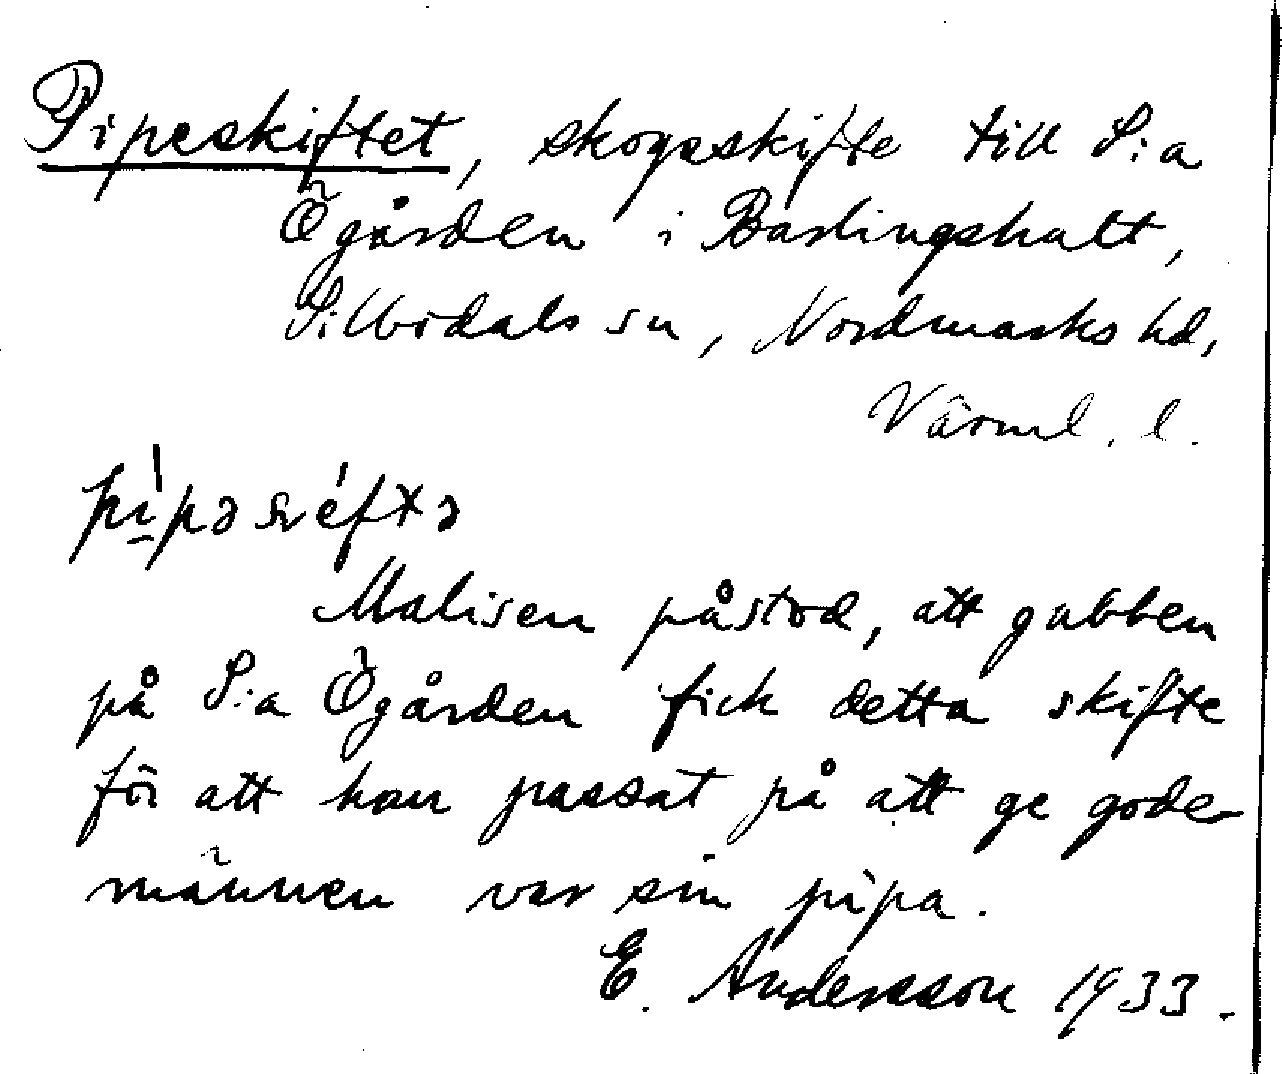 Pipeskiftet, skogsskifte till S:a
Ögården i Barlingshult,
Silbodals sn, Nordmarks hd,
Värml. l.
Malisen påstod, att gubben
på S:a Ögården fick detta skifte
för att han passat på att ge gode
männen var sin pipa.
E. Andersson 1933.